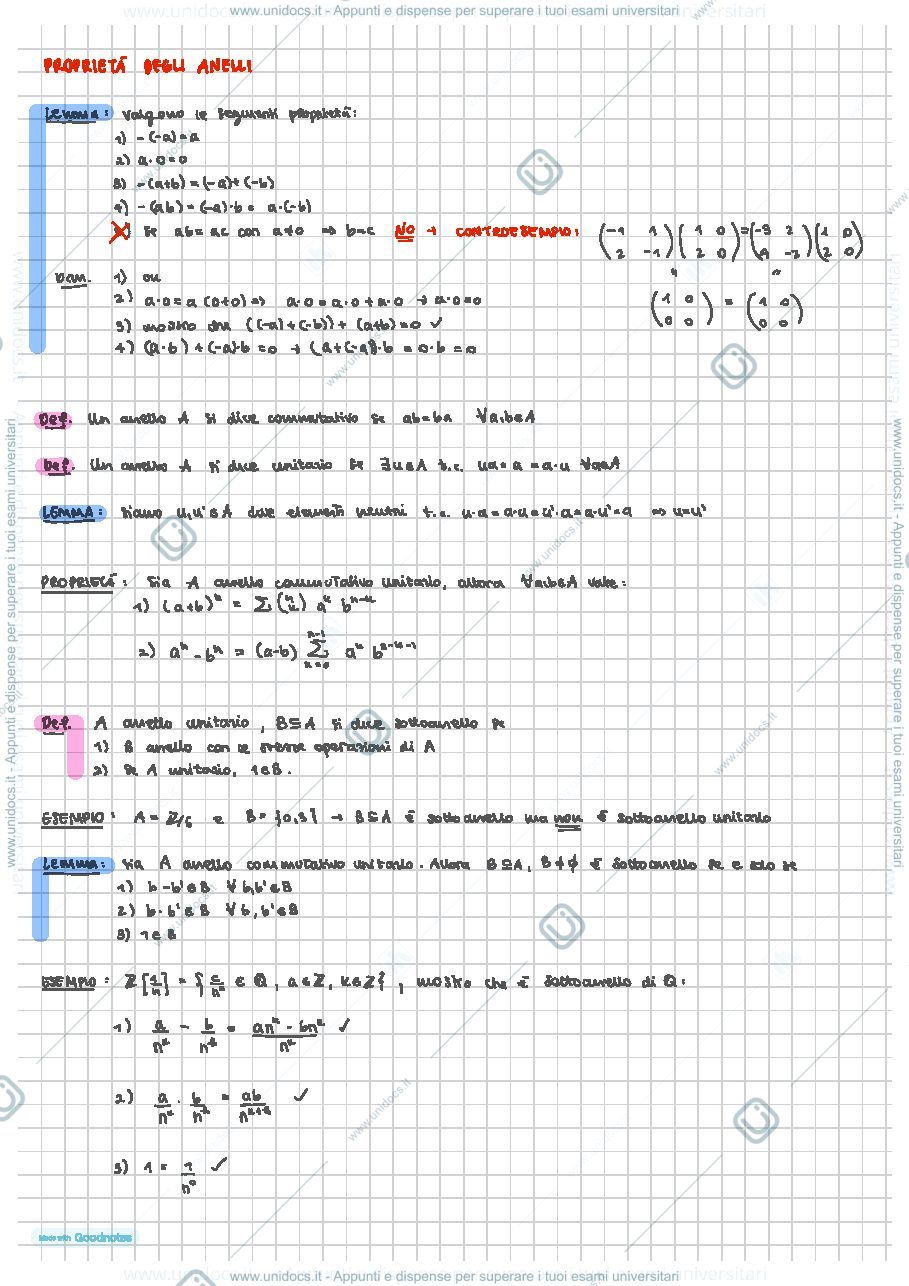 www.unidocs.it - Appunti e dispense per superare i tuoi esami universitari
PROPRIETÁ DEGLI ANELLI
Lemma: Valgono le seguenti proprietá:
1) -(-a)=a
2) a·0=0
3) -(a+b) = (-a)+(-b)
4) -(ab) = (-a)·b = a·(-b)
Se ab=ac con a≠0 ⇒ b=c NO → CONTROESEMPIO: (-1 1 / 2 -1)(1 0 / 2 0) = (-3 2 / 4 -2)(1 0 / 2 0)
(1 0 / 0 0) = (1 0 / 0 0)
Dim. 1) ou
2) a·0 = a(0+0) ⇒ a·0 = a·0 + a·0 → a·0=0
3) mostro che ((-a)+(-b)) + (a+b) = 0 ✓
4) (a·b) + (-a)·b = 0 → (a+(-a))·b = 0·b = 0
Def. Un anello A si dice commutativo se ab=ba ∀a,b∈A
Def. Un anello A si dice unitario se ∃u∈A t.c. ua = a = a·u ∀a∈A
LEMMA: siano u,u'∈A due elementi neutri t.c. u·a = a·u = u'·a = a·u' = a ⇒ u=u'
PROPRIETÁ: Sia A anello commutativo unitario, allora ∀a,b∈A vale:
1) (a+b)ⁿ = Σ (n k) aᵏ bⁿ⁻ᵏ
2) aⁿ - bⁿ = (a-b) Σ aᵏ bⁿ⁻ᵏ⁻¹
Def. A anello unitario, B⊆A si dice sottoanello se
1) B anello con le stesse operazioni di A
2) se A unitario, 1∈B.
ESEMPIO: A = Z/6 e B = {0,3} → B⊆A é sottoanello ma non é sottoanello unitario
Lemma: sia A anello commutativo unitario. Allora B⊆A, B≠∅ é sottoanello se e solo se
1) b-b'∈B ∀b,b'∈B
2) b·b'∈B ∀b,b'∈B
3) 1∈B
ESEMPIO: Z[1/n] = { /nᵏ ∈ Q, a∈Z, k∈Z}, mostro che é sottoanello di Q:
1) a/nᵏ - b/nʰ = ✓
2) a/nᵏ · b/nʰ = ab/nᵏ⁺ʰ ✓
3) 1 = 1/n⁰ ✓
Made with Goodnotes
www.unidocs.it - Appunti e dispense per superare i tuoi esami universitari